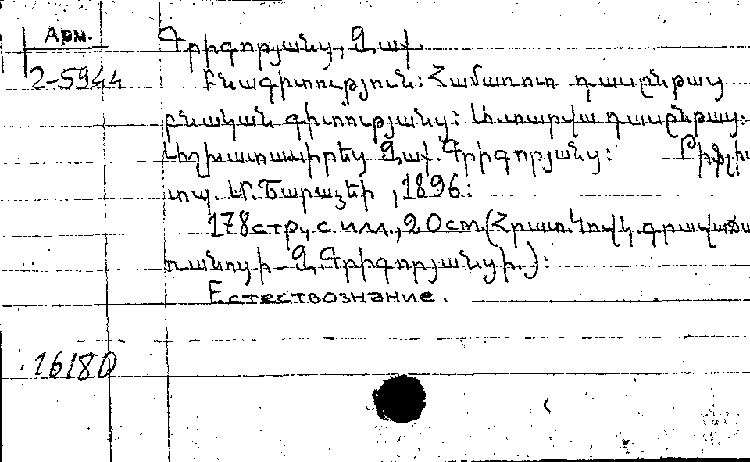 Арм.
2-5944
Գրիգորյանց, Զաք.
Բնագիտություն: Համառոտ դասընթաց
բնական գիտությանց: Ա. տարվա դասընթաց:
Աշխատասիրեց Զաք. Գրիգորյանց: Թիֆլիս
տպ. Մ. Շարաձեի, 1896:
178 стр., с илл., 20 см. (Հրատ. Կովկ. գրավաճա
ռանոցի Զ. Գրիգորյանցի.):
Естествознание.
16180